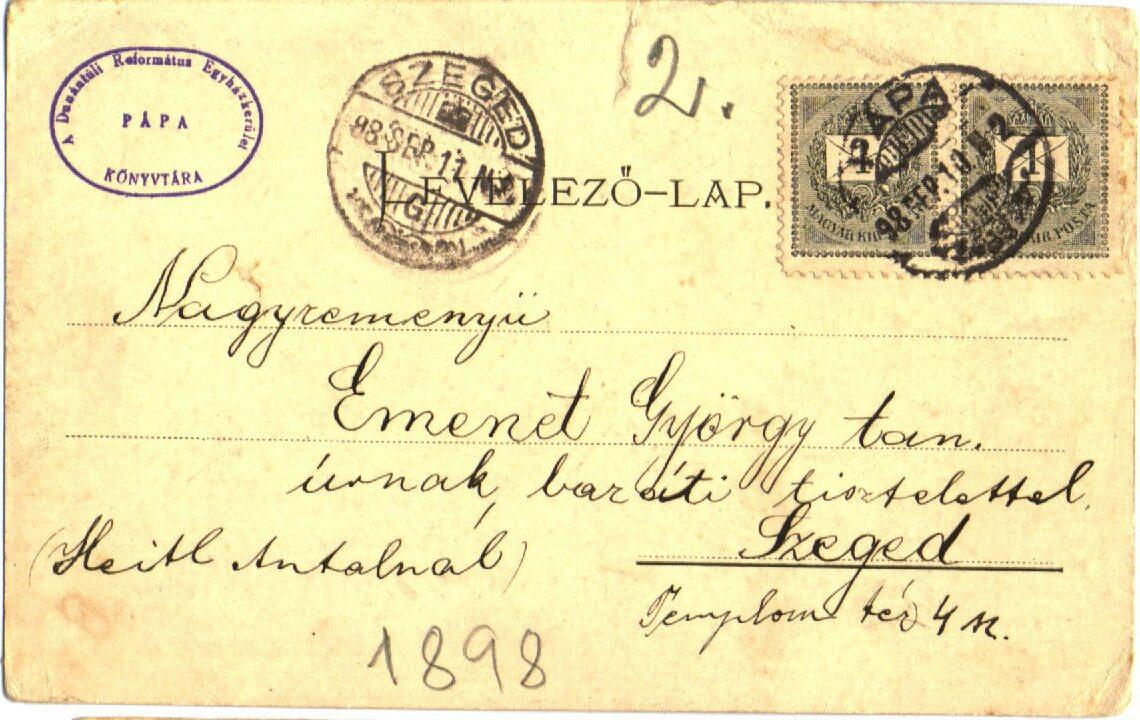 A Dunántúli Református Egyházkerület
PÁPA
KÖNYVTÁRA
SZEGED
98 SEP. 11
G
2.
PÁPA
98 SEP. 10
1
1
MAGYAR KIR.
KIR. POSTA
LEVELEZŐ-LAP.
Nagyreményü
Emenet György tan.
úrnak, baráti tisztelettel.
Szeged
(Heitl Antalnál)
Templom tér 4 sz.
1898